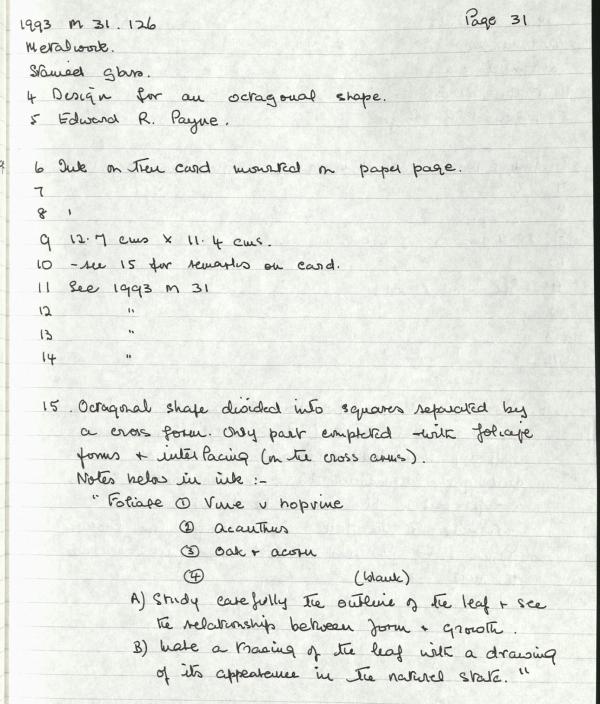 1993 M 31. 126 Page 31
Metalwork.
Stained glass.
4 Design for an octagonal shape.
5 Edward R. Payne.
6 Ink on thin card mounted on paper page.
7
8 '
9 12.7 cms x 11.4 cms.
10 - see 15 for remarks on card.
11 See 1993 M 31
12 "
13 "
14 "
15. Octagonal shape divided into squares separated by
a cross form. Only part completed - with foliage
forms + interlacing (on the cross arms).
Notes below in ink :-
"Foliage ① Vine v hopvine
② acanthus
③ Oak + acorn
④ (blank)
A) Study carefully the outline of the leaf + see
the relationship between form + growth.
B) Make a tracing of the leaf with a drawing
of its appearance in the natural state."